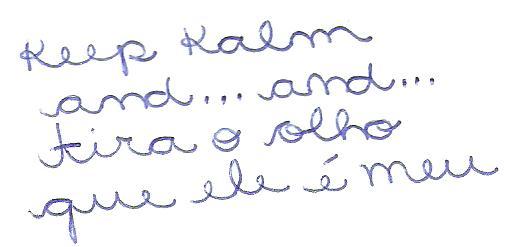 Keep Kalm
and... and...
tira o olho
que ele é meu